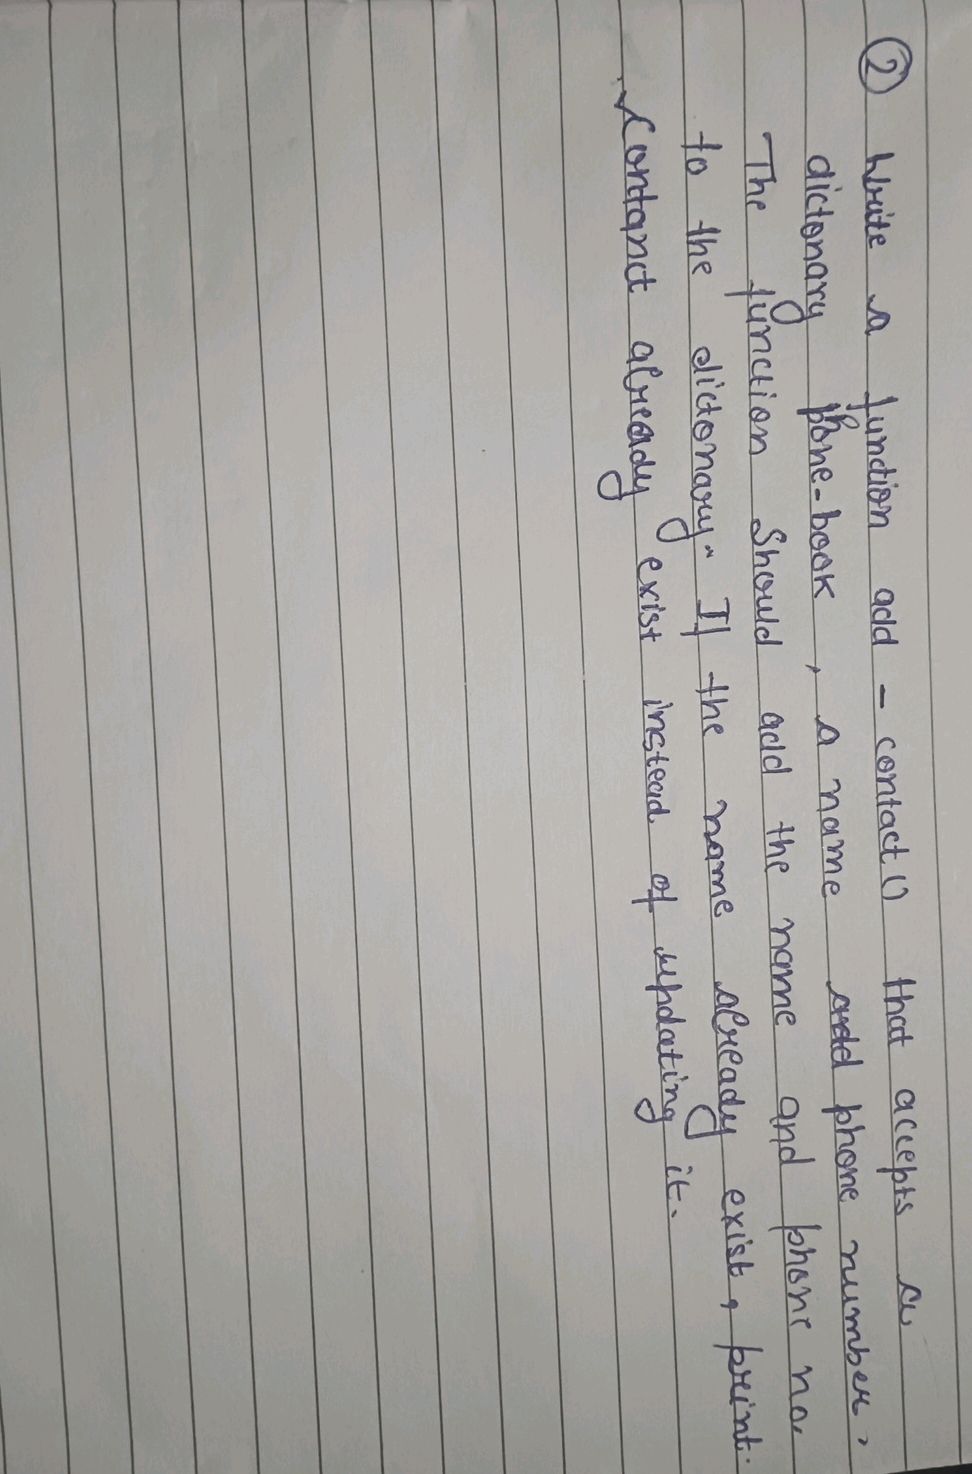 ② Write a function add - contact() that accepts a
dictonary phone-book, a name add phone number,
The function Should add the name and phone no.
to the dictonary. If the name already exist, print.
Contanct already exist instead of updating it.